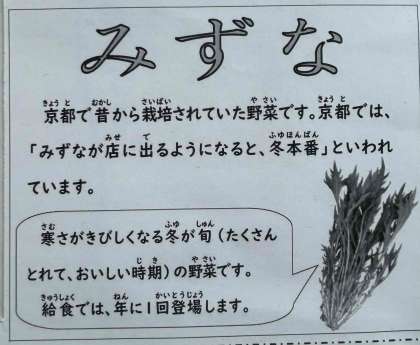 みずな
京都で昔から栽培されていた野菜です。京都では、
「みずなが店に出るようになると、冬本番」といわれ
ています。
寒さがきびしくなる冬が旬(たくさん
とれて、おいしい時期)の野菜です。
給食では、年に1回登場します。